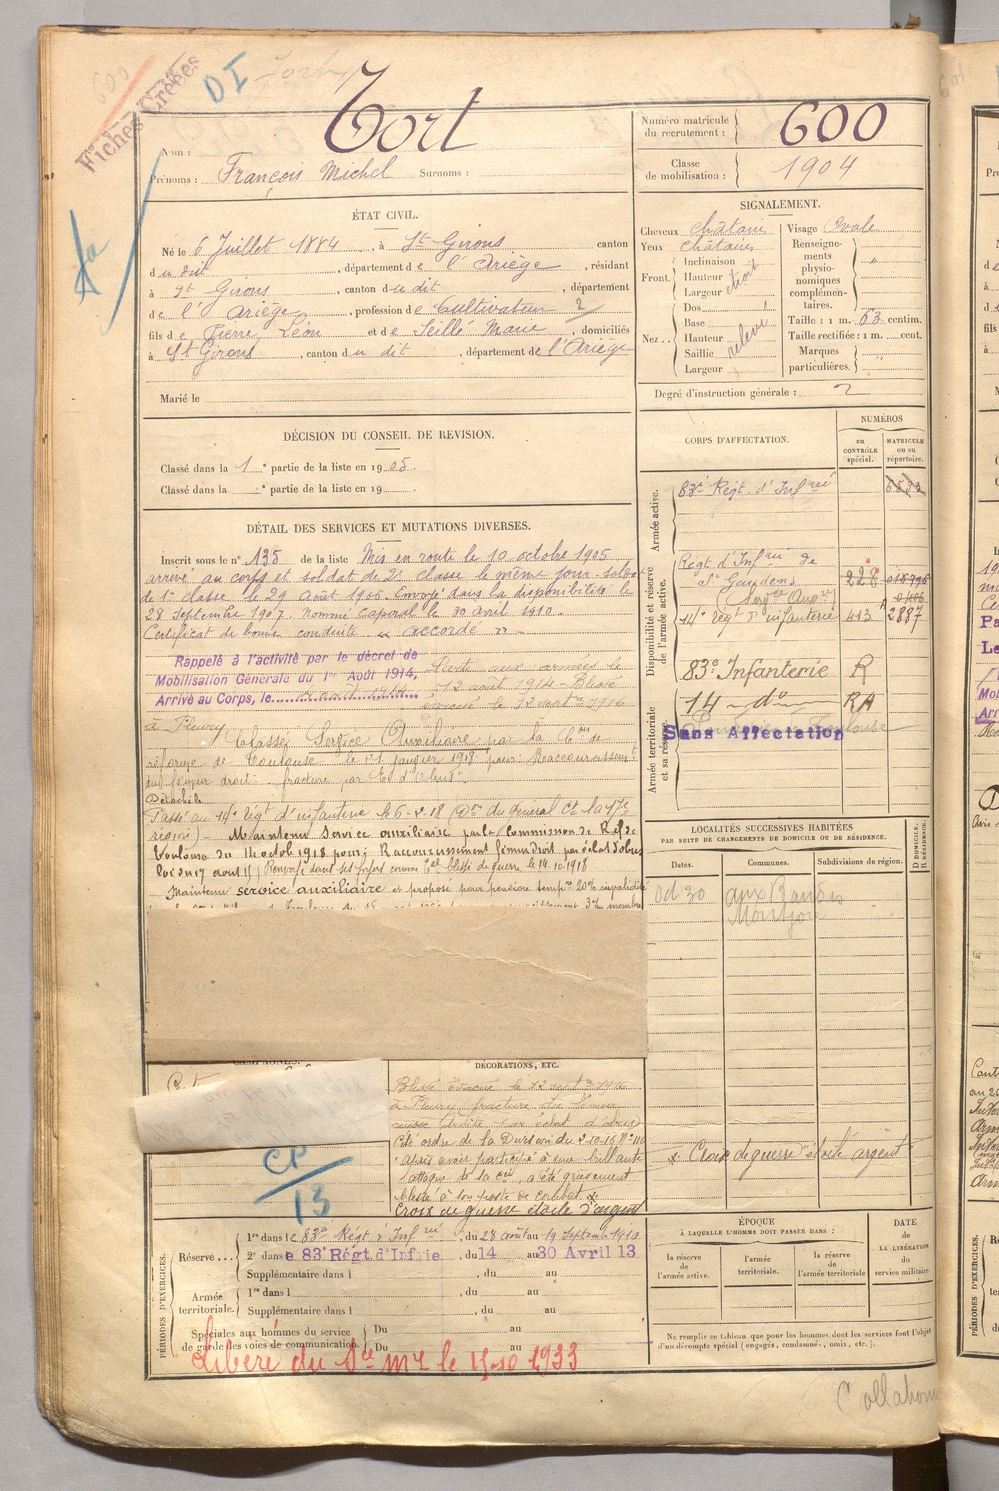 600
Fiches Créées
DI
Tort
Nom :
Prénoms : François Michel Surnoms :
Numéro matricule du recrutement : 600
Classe de mobilisation : 1904
ÉTAT CIVIL.
Né le 6 Juillet 1884, à St Girons canton
du dit, département de l'Ariège, résidant
à St Girons, canton du dit, département
de l'Ariège, profession de Cultivateur 2
fils de Pierre Léon et de Seillé Marie, domiciliés
à St Girons, canton du dit, département de l'Ariège
Marié le
SIGNALEMENT.
Cheveux châtain
Yeux châtains
Front. Inclinaison
Hauteur
Largeur étroit
Nez. Dos
Base
Hauteur
Saillie relevé
Largeur
Visage Ovale
Renseignements physionomiques complémentaires. "
Taille : 1 m. 63 centim.
Taille rectifiée : 1 m. cent.
Marques particulières. "
Degré d'instruction générale : 2
DÉCISION DU CONSEIL DE REVISION.
Classé dans la 1e partie de la liste en 1905.
Classé dans la e partie de la liste en 19
DÉTAIL DES SERVICES ET MUTATIONS DIVERSES.
Inscrit sous le n° 135 de la liste Mis en route le 10 octobre 1905
arrivé au corps et soldat de 2e classe le même jour. soldat
de 1re classe le 29 Août 1906. Envoyé dans la disponibilité le
28 septembre 1907. nommé Caporal le 30 avril 1910.
Certificat de bonne conduite "accordé".
Rappelé à l'activité par le décret de
Mobilisation Générale du 1er Août 1914,
Arrivé au Corps, le août 1914. Parti aux armées le
12 août 1914 - Blessé
évacué le 12 septre 1916
à Fleury
Classé Service Auxiliaire par la Con de
réforme de Toulouse le 11 janvier 1918 pour: Raccourcissement
du fémur droit: fracture par Ét d'obus".
Détaché
Passé au 14e Régt d'infanterie le 6-2-18 (Don du Général Ct la 17e
région) - Maintenu Service auxiliaire par la Commission de Réf de
Toulouse du 14 octob 1918 pour; Raccourcissement fémur droit par éclat d'obus
Loi du 17 aout 15) Renvoyé dans ses foyers comme blessé de guerre le 14.10.1918
Maintenu service auxiliaire et proposé pour pension tempre 20% invalidité
CORPS D'AFFECTATION.
NUMÉROS
au CONTRÔLE spécial.
MATRICULE ou au répertoire.
Armée active.
83e Régt. d'Infrie
Disponibilité et réserve de l'armée active.
Régt d'Infrie de
St Gaudens 228
14e Régt d'infanterie 413 2887
83e Infanterie R
Armée territoriale et sa réserve.
14 - do - RA
Sans Affectation
LOCALITÉS SUCCESSIVES HABITÉES
PAR SUITE DE CHANGEMENTS DE DOMICILE OU DE RÉSIDENCE.
Dates. Communes. Subdivisions de région. D DOMICILE. R RÉSIDENCE.
CAMPAGNES.
DÉCORATIONS, ETC.
Blessé évacué le 12 septre 1916
à Fleury fracture du fémur
Cité ordre de la Division du 2-10-16 N° 110
Après avoir participé à une brillante
attaque de sa Cie, a été grièvement
blessé à son poste de combat.
Croix de guerre étoile d'argent
"Croix de guerre" étoile argent"
CP
13
PÉRIODES D'EXERCICES.
Réserve... 1re dans le 83e Régt d'Infrie, du 28 août au 19 septembre 1910
2e dans le 83e Régt. d'Infrie, du 14 au 30 Avril 13
Supplémentaire dans l , du au
Armée territoriale. 1re dans l , du au
Supplémentaire dans l , du au
Spéciales aux hommes du service de garde des voies de communication. Du au
Du au
Libéré du Sce Mre le 15-10 1933
ÉPOQUE
À LAQUELLE L'HOMME DOIT PASSER DANS :
la réserve de l'armée active.
l'armée territoriale.
la réserve de l'armée territoriale
DATE DE LA LIBÉRATION du service militaire.
Ne remplir ce tableau que pour les hommes dont les services font l'objet
d'un décompte spécial (engagés, condamnés, omis, etc.).